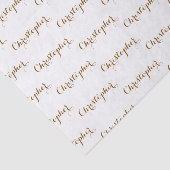 Christopher Christopher Christopher
Christopher Christopher Christopher
Christopher Christopher Christopher
Christopher Christopher Christopher
Christopher Christopher
Christopher